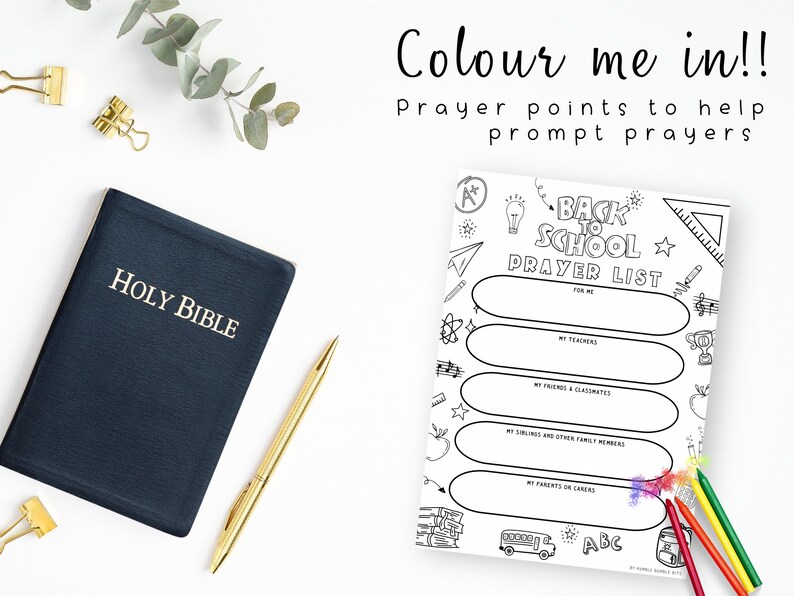 Colour me in!!
Prayer points to help
prompt prayers
HOLY BIBLE
A+
BACK
TO
SCHOOL
PRAYER LIST
FOR ME
MY TEACHERS
MY FRIENDS & CLASSMATES
MY SIBLINGS AND OTHER FAMILY MEMBERS
MY PARENTS OR CARERS
ABC
BY HUMBLE BUMBLE BITS